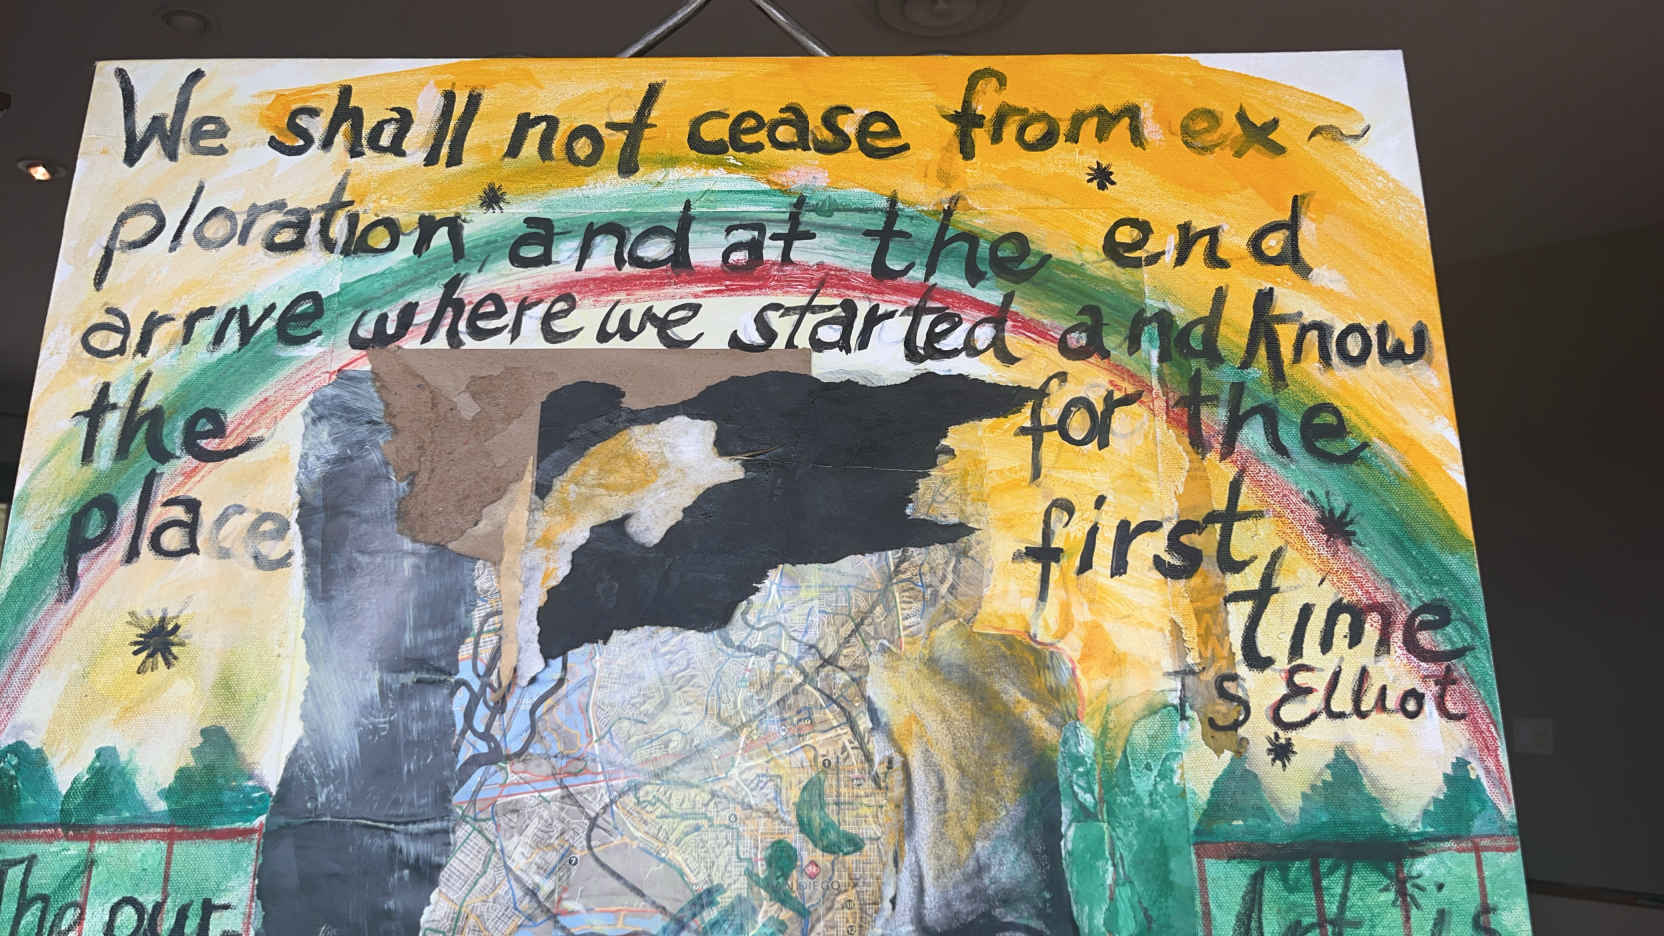 We shall not cease from ex~
ploration and at the end
arrive where we started and know
the for the
place first,
time
S Elliot
The pur
Art is